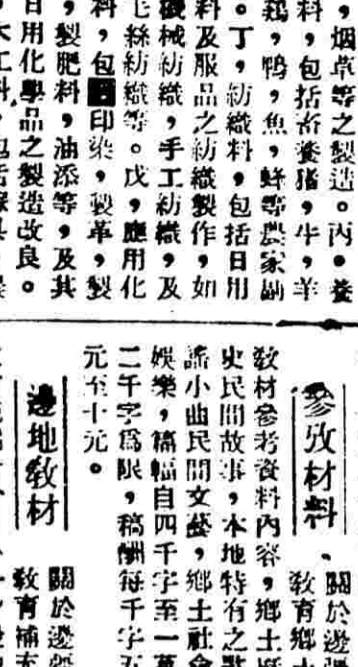 ，烟草等之製造。丙，養
鷄，鴨，魚，蜂等農家副
料，包括畜養猪，牛，羊
。丁，紡織料，包括日用
料及服品之紡織製作，如
機械紡織，手工紡織，及
毛絲紡織等。戊，應用化
料，包 印染，製革，製
，製肥料，油漆等，及其
日用化學品之製造改良。
參攷材料
、關於邊
教育鄉
教材參考資料內容，鄉土
史民間故事，本地特有之
謠小曲民間文藝，鄉土社會
娛樂，篇幅自四千字至一萬
二千字為限，稿酬每千字五
元至十元。
邊地教材
關於邊
教育補充